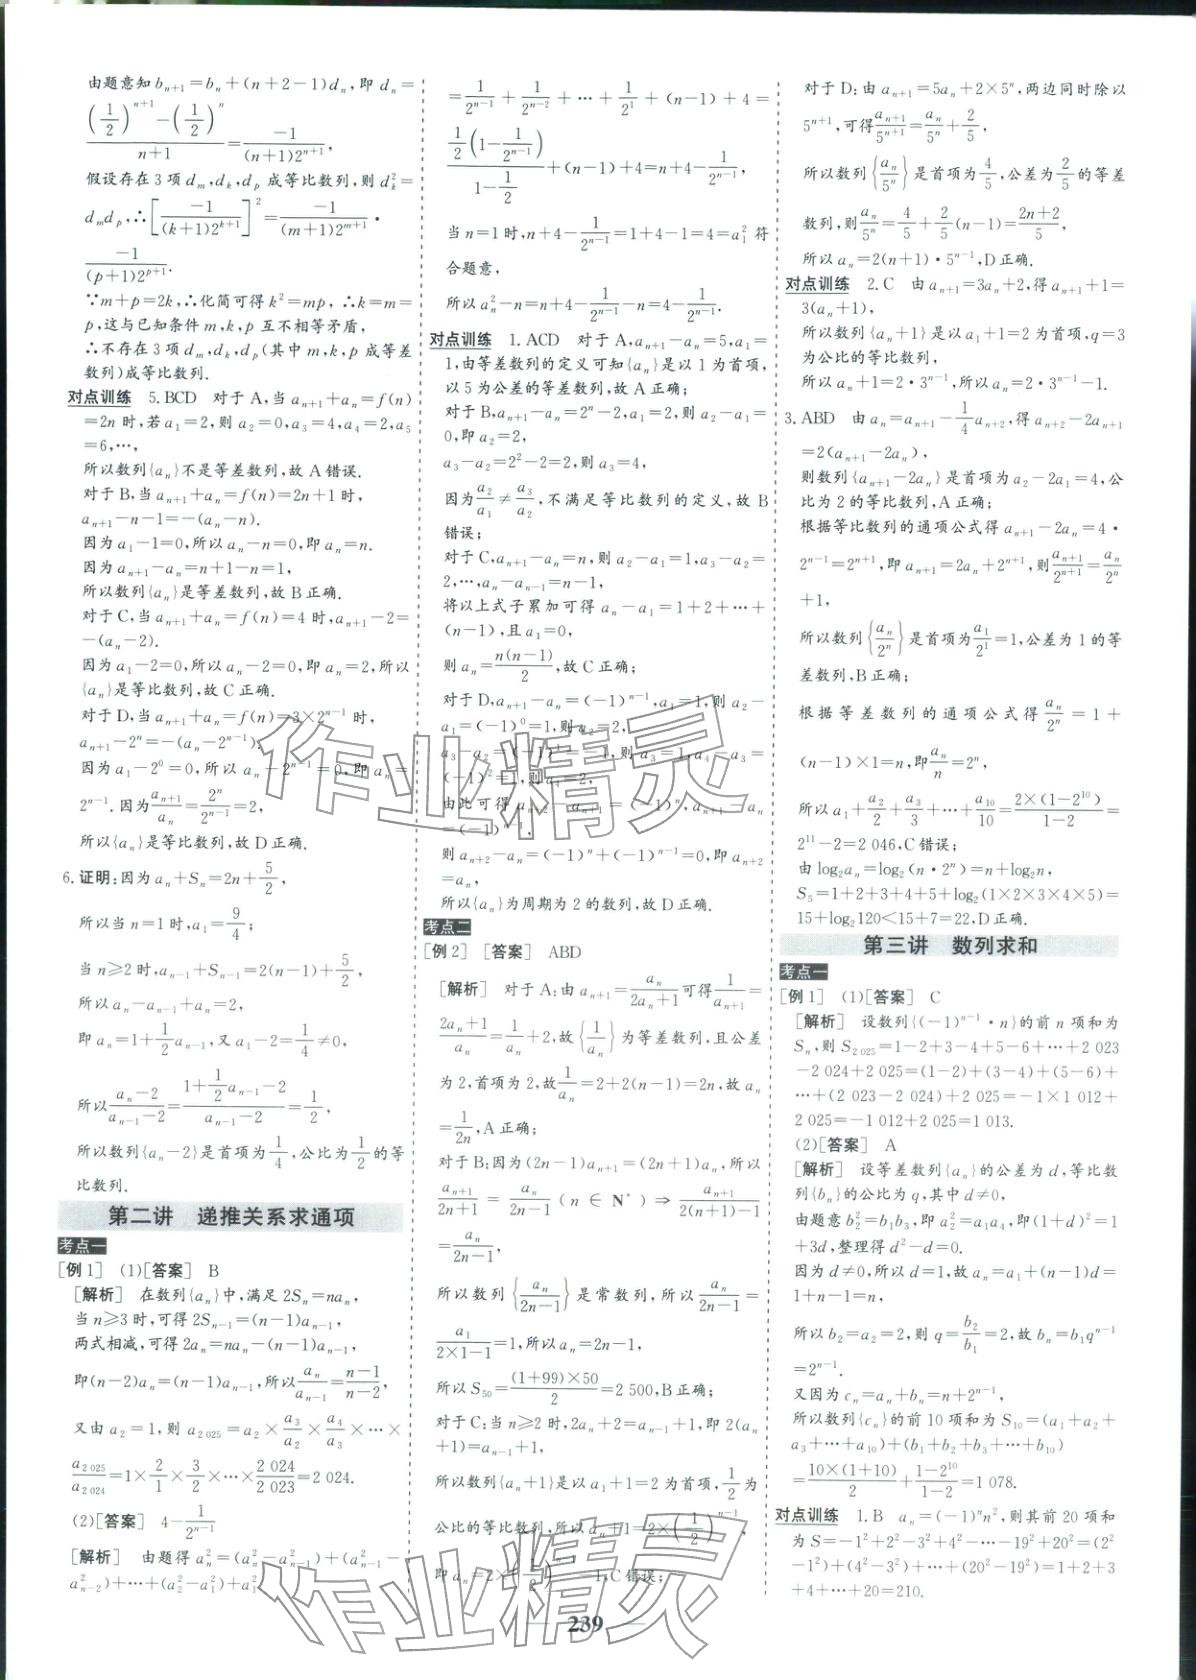 由题意知 b_{n+1}=b_n+(n+2-1)d_n,即 d_n=
\frac{(\frac{1}{2})^{n+1}-(\frac{1}{2})^n}{n+1}=\frac{-1}{(n+1)2^{n+1}},
假设存在3项 d_m,d_k,d_p 成等比数列,则 d_k^2=
d_m d_p,∴[\frac{-1}{(k+1)2^{k+1}}]^2=\frac{-1}{(m+1)2^{m+1}}·
\frac{-1}{(p+1)2^{p+1}}.
∵m+p=2k,∴化简可得 k^2=mp,∴k=m=
p,这与已知条件 m,k,p 互不相等矛盾,
∴不存在3项 d_m,d_k,d_p(其中 m,k,p 成等差
数列)成等比数列.
对点训练 5.BCD 对于A,当 a_{n+1}+a_n=f(n)
=2n 时,若 a_1=2,则 a_2=0,a_3=4,a_4=2,a_5
=6,…,
所以数列{a_n}不是等差数列,故A错误.
对于B,当 a_{n+1}+a_n=f(n)=2n+1时,
a_{n+1}-n-1=-(a_n-n).
因为 a_1-1=0,所以 a_n-n=0,即 a_n=n.
因为 a_{n+1}-a_n=n+1-n=1,
所以数列{a_n}是等差数列,故B正确.
对于C,当 a_{n+1}+a_n=f(n)=4时,a_{n+1}-2=
-(a_n-2).
因为 a_1-2=0,所以 a_n-2=0,即 a_n=2,所以
{a_n}是等比数列,故C正确.
对于D,当 a_{n+1}+a_n=f(n)=3×2^{n-1} 时,
a_{n+1}-2^n=-(a_n-2^{n-1}).
因为 a_1-2^0=0,所以 a_n-2^{n-1}=0,即 a_n=
2^{n-1}.因为\frac{a_{n+1}}{a_n}=\frac{2^n}{2^{n-1}}=2,
所以{a_n}是等比数列,故D正确.
6.证明:因为 a_n+S_n=2n+\frac{5}{2},
所以当 n=1时,a_1=\frac{9}{4};
当 n≥2时,a_{n-1}+S_{n-1}=2(n-1)+\frac{5}{2},
所以 a_n-a_{n-1}+a_n=2,
即 a_n=1+\frac{1}{2}a_{n-1},又 a_1-2=\frac{1}{4}≠0,
所以\frac{a_n-2}{a_{n-1}-2}=\frac{1+\frac{1}{2}a_{n-1}-2}{a_{n-1}-2}=\frac{1}{2},
所以数列{a_n-2}是首项为\frac{1}{4},公比为\frac{1}{2}的等
比数列.
第二讲 递推关系求通项
考点一
[例1] (1)[答案] B
[解析] 在数列{a_n}中,满足 2S_n=na_n,
当 n≥3时,可得 2S_{n-1}=(n-1)a_{n-1},
两式相减,可得 2a_n=na_n-(n-1)a_{n-1},
即(n-2)a_n=(n-1)a_{n-1},所以\frac{a_n}{a_{n-1}}=\frac{n-1}{n-2},
又由 a_2=1,则 a_{2 025}=a_2×\frac{a_3}{a_2}×\frac{a_4}{a_3}×…×
\frac{a_{2 025}}{a_{2 024}}=1×\frac{2}{1}×\frac{3}{2}×…×\frac{2 024}{2 023}=2 024.
(2)[答案] 4-\frac{1}{2^{n-1}}
[解析] 由题得 a_n^2=(a_n^2-a_{n-1}^2)+(a_{n-1}^2-
a_{n-2}^2)+…+(a_2^2-a_1^2)+a_1^2
=\frac{1}{2^{n-1}}+\frac{1}{2^{n-2}}+…+\frac{1}{2^1}+(n-1)+4=
\frac{\frac{1}{2}(1-\frac{1}{2^{n-1}})}{1-\frac{1}{2}}+(n-1)+4=n+4-\frac{1}{2^{n-1}},
当 n=1时,n+4-\frac{1}{2^{n-1}}=1+4-1=4=a_1^2 符
合题意,
所以 a_n^2-n=n+4-\frac{1}{2^{n-1}}-n=4-\frac{1}{2^{n-1}}.
对点训练 1.ACD 对于A,a_{n+1}-a_n=5,a_1=
1,由等差数列的定义可知{a_n}是以1为首项,
以5为公差的等差数列,故A正确;
对于B,a_{n+1}-a_n=2^n-2,a_1=2,则 a_2-a_1=
0,即 a_2=2,
a_3-a_2=2^2-2=2,则 a_3=4,
因为\frac{a_2}{a_1}≠\frac{a_3}{a_2},不满足等比数列的定义,故B
错误;
对于C,a_{n+1}-a_n=n,则 a_2-a_1=1,a_3-a_2=
2,…,a_n-a_{n-1}=n-1,
将以上式子累加可得 a_n-a_1=1+2+…+
(n-1),且 a_1=0,
则 a_n=\frac{n(n-1)}{2},故C正确;
对于D,a_{n+1}-a_n=(-1)^{n-1},a_1=1,则 a_2-
a_1=(-1)^0=1,则 a_2=2,
a_3-a_2=(-1)^1=-1,则 a_3=1,a_4-a_3=
(-1)^2=1,则 a_4=2,
由此可得 a_{n+2}-a_{n+1}=(-1)^n,a_{n+1}-a_n
=(-1)^{n-1},
则 a_{n+2}-a_n=(-1)^n+(-1)^{n-1}=0,即 a_{n+2}
=a_n,
所以{a_n}为周期为2的数列,故D正确.
考点二
[例2] [答案] ABD
[解析] 对于A:由 a_{n+1}=\frac{a_n}{2a_n+1}可得\frac{1}{a_{n+1}}=
\frac{2a_n+1}{a_n}=\frac{1}{a_n}+2,故{\frac{1}{a_n}}为等差数列,且公差
为2,首项为2,故\frac{1}{a_n}=2+2(n-1)=2n,故 a_n
=\frac{1}{2n},A正确;
对于B:因为(2n-1)a_{n+1}=(2n+1)a_n,所以
\frac{a_{n+1}}{2n+1}=\frac{a_n}{2n-1}(n∈N^*)⇒\frac{a_{n+1}}{2(n+1)-1}
=\frac{a_n}{2n-1},
所以数列{\frac{a_n}{2n-1}}是常数列,所以\frac{a_n}{2n-1}=
\frac{a_1}{2×1-1}=1,所以 a_n=2n-1,
所以 S_{50}=\frac{(1+99)×50}{2}=2 500,B正确;
对于C:当 n≥2时,2a_n+2=a_{n-1}+1,即2(a_n
+1)=a_{n-1}+1,
所以数列{a_n+1}是以 a_1+1=2为首项,\frac{1}{2}为
公比的等比数列,所以 a_n+1=2×(\frac{1}{2})^{n-1},
即 a_n=2×(\frac{1}{2})^{n-1}-1,C错误;
对于D:由 a_{n+1}=5a_n+2×5^n,两边同时除以
5^{n+1},可得\frac{a_{n+1}}{5^{n+1}}=\frac{a_n}{5^n}+\frac{2}{5},
所以数列{\frac{a_n}{5^n}}是首项为\frac{4}{5},公差为\frac{2}{5}的等差
数列,则\frac{a_n}{5^n}=\frac{4}{5}+\frac{2}{5}(n-1)=\frac{2n+2}{5},
所以 a_n=2(n+1)·5^{n-1},D正确.
对点训练 2.C 由 a_{n+1}=3a_n+2,得 a_{n+1}+1=
3(a_n+1),
所以数列{a_n+1}是以 a_1+1=2为首项,q=3
为公比的等比数列,
所以 a_n+1=2·3^{n-1},所以 a_n=2·3^{n-1}-1.
3.ABD 由 a_n=a_{n+1}-\frac{1}{4}a_{n+2},得 a_{n+2}-2a_{n+1}
=2(a_{n+1}-2a_n),
则数列{a_{n+1}-2a_n}是首项为 a_2-2a_1=4,公
比为2的等比数列,A正确;
根据等比数列的通项公式得 a_{n+1}-2a_n=4·
2^{n-1}=2^{n+1},即 a_{n+1}=2a_n+2^{n+1},则\frac{a_{n+1}}{2^{n+1}}=\frac{a_n}{2^n}
+1,
所以数列{\frac{a_n}{2^n}}是首项为\frac{a_1}{2^1}=1,公差为1的等
差数列,B正确;
根据等差数列的通项公式得\frac{a_n}{2^n}=1+
(n-1)×1=n,即\frac{a_n}{n}=2^n,
所以 a_1+\frac{a_2}{2}+\frac{a_3}{3}+…+\frac{a_{10}}{10}=\frac{2×(1-2^{10})}{1-2}=
2^{11}-2=2 046,C错误;
由 log_2a_n=log_2(n·2^n)=n+log_2n,
S_5=1+2+3+4+5+log_2(1×2×3×4×5)=
15+log_2120<15+7=22,D正确.
第三讲 数列求和
考点一
[例1] (1)[答案] C
[解析] 设数列{(-1)^{n-1}·n}的前 n 项和为
S_n,则 S_{2 025}=1-2+3-4+5-6+…+2 023
-2 024+2 025=(1-2)+(3-4)+(5-6)+
…+(2 023-2 024)+2 025=-1×1 012+
2 025=-1 012+2 025=1 013.
(2)[答案] A
[解析] 设等差数列{a_n}的公差为 d,等比数
列{b_n}的公比为 q,其中 d≠0,
由题意 b_2^2=b_1b_3,即 a_2^2=a_1a_4,即(1+d)^2=1
+3d,整理得 d^2-d=0.
因为 d≠0,所以 d=1,故 a_n=a_1+(n-1)d=
1+n-1=n,
所以 b_2=a_2=2,则 q=\frac{b_2}{b_1}=2,故 b_n=b_1q^{n-1}
=2^{n-1}.
又因为 c_n=a_n+b_n=n+2^{n-1},
所以数列{c_n}的前10项和为 S_{10}=(a_1+a_2+
a_3+…+a_{10})+(b_1+b_2+b_3+…+b_{10})
=\frac{10×(1+10)}{2}+\frac{1-2^{10}}{1-2}=1 078.
对点训练 1.B a_n=(-1)^n n^2,则其前20项和
为 S=-1^2+2^2-3^2+4^2-…-19^2+20^2=(2^2
-1^2)+(4^2-3^2)+…+(20^2-19^2)=1+2+3
+4+…+20=210.
239
作业精灵
作业精灵